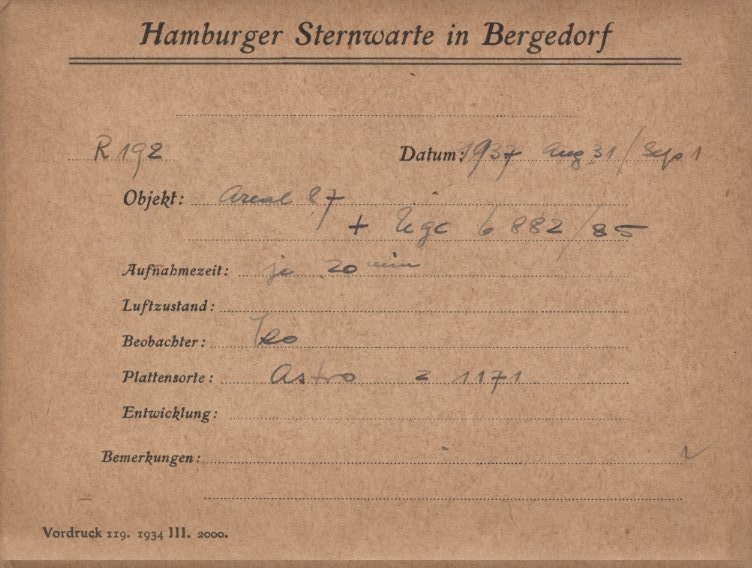 Hamburger Sternwarte in Bergedorf
R 192 Datum: 1937 Aug 31/Sep 1
Objekt: Areal 87
+ Ngc 6882/85
Aufnahmezeit: je 20 min
Luftzustand:
Beobachter:
Plattensorte: Astro Z 1171
Entwicklung:
Bemerkungen:
Vordruck 119. 1934 III. 2000.